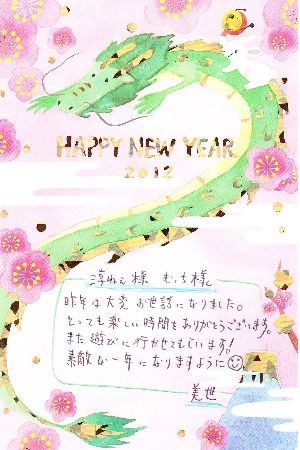 HAPPY NEW YEAR
2012
淳ねぇ様 むっち様
昨年は大変お世話になりました。
とっても楽しい時間をありがとうございます。
また遊びに行かせてもらいます!
素敵な一年になりますように
美世